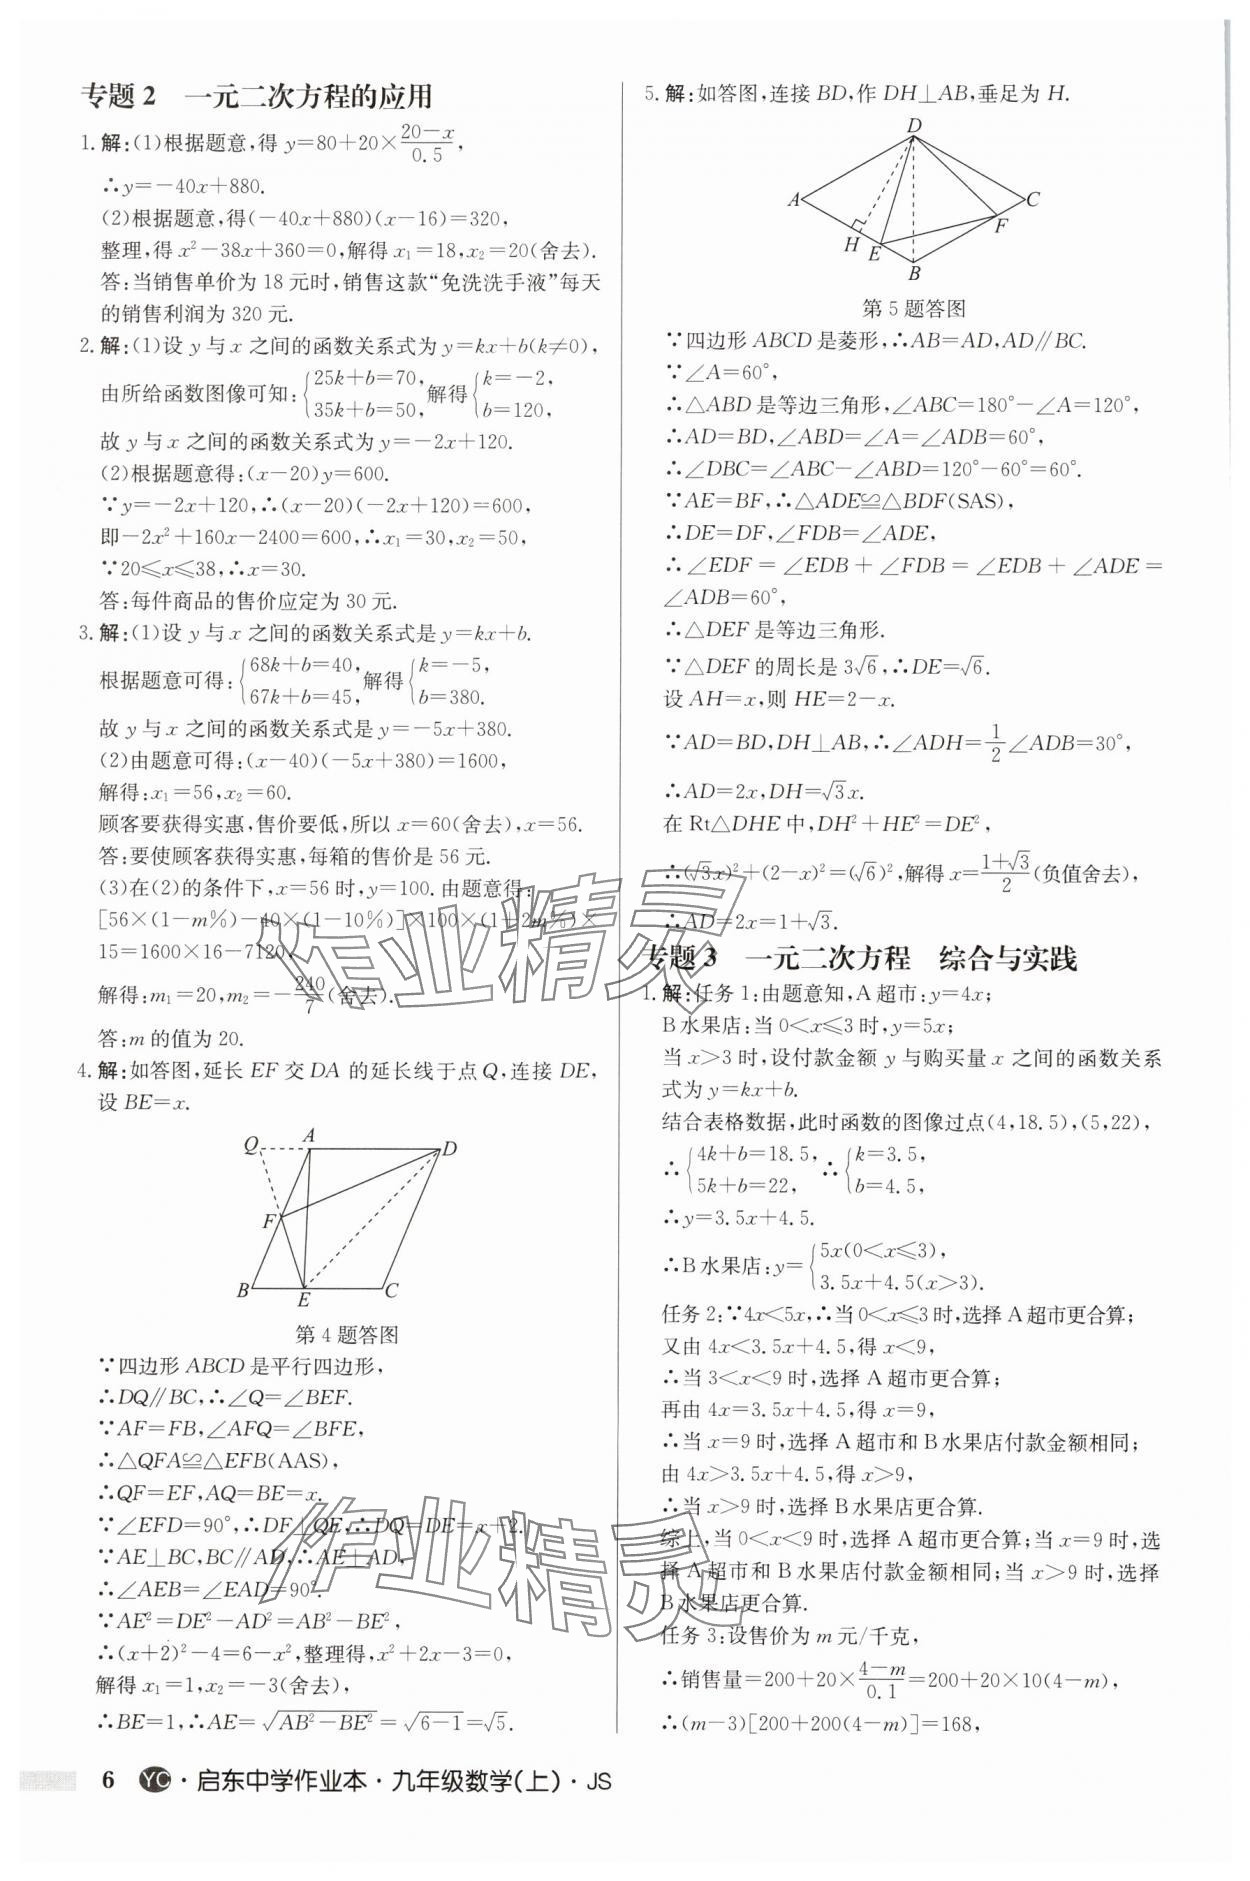 专题2 一元二次方程的应用
1.解:(1)根据题意,得 y=80+20×\frac{20-x}{0.5},
∴y=-40x+880.
(2)根据题意,得(-40x+880)(x-16)=320,
整理,得 x²-38x+360=0,解得 x₁=18,x₂=20(舍去).
答:当销售单价为 18 元时,销售这款“免洗洗手液”每天
的销售利润为 320 元.
2.解:(1)设 y 与 x 之间的函数关系式为 y=kx+b(k≠0),
由所给函数图像可知:{25k+b=70, 35k+b=50, 解得{k=-2, b=120,
故 y 与 x 之间的函数关系式为 y=-2x+120.
(2)根据题意得:(x-20)y=600.
∵y=-2x+120,∴(x-20)(-2x+120)=600,
即-2x²+160x-2400=600,∴x₁=30,x₂=50,
∵20≤x≤38,∴x=30.
答:每件商品的售价应定为 30 元.
3.解:(1)设 y 与 x 之间的函数关系式是 y=kx+b.
根据题意可得:{68k+b=40, 67k+b=45, 解得{k=-5, b=380.
故 y 与 x 之间的函数关系式是 y=-5x+380.
(2)由题意可得:(x-40)(-5x+380)=1600,
解得:x₁=56,x₂=60.
顾客要获得实惠,售价要低,所以 x=60(舍去),x=56.
答:要使顾客获得实惠,每箱的售价是 56 元.
(3)在(2)的条件下,x=56 时,y=100.由题意得:
[56×(1-m%)-40×(1-10%)]×100×(1+2m%)×
15=1600×16-7120,
解得:m₁=20,m₂=-\frac{240}{7}(舍去).
答:m 的值为 20.
4.解:如答图,延长 EF 交 DA 的延长线于点 Q,连接 DE,
设 BE=x.
Q A D
F
B E C
第 4 题答图
∵四边形 ABCD 是平行四边形,
∴DQ∥BC,∴∠Q=∠BEF.
∵AF=FB,∠AFQ=∠BFE,
∴△QFA≌△EFB(AAS),
∴QF=EF,AQ=BE=x.
∵∠EFD=90°,∴DF⊥QE,∴DQ=DE=x+2.
∵AE⊥BC,BC∥AD,∴AE⊥AD,
∴∠AEB=∠EAD=90°.
∵AE²=DE²-AD²=AB²-BE²,
∴(x+2)²-4=6-x²,整理得,x²+2x-3=0,
解得 x₁=1,x₂=-3(舍去),
∴BE=1,∴AE=√(AB²-BE²)=√(6-1)=√5.
5.解:如答图,连接 BD,作 DH⊥AB,垂足为 H.
D
A C
H E F
B
第 5 题答图
∵四边形 ABCD 是菱形,∴AB=AD,AD∥BC.
∵∠A=60°,
∴△ABD 是等边三角形,∠ABC=180°-∠A=120°,
∴AD=BD,∠ABD=∠A=∠ADB=60°,
∴∠DBC=∠ABC-∠ABD=120°-60°=60°.
∵AE=BF,∴△ADE≌△BDF(SAS),
∴DE=DF,∠FDB=∠ADE,
∴∠EDF=∠EDB+∠FDB=∠EDB+∠ADE=
∠ADB=60°,
∴△DEF 是等边三角形.
∵△DEF 的周长是 3√6,∴DE=√6.
设 AH=x,则 HE=2-x.
∵AD=BD,DH⊥AB,∴∠ADH=\frac{1}{2}∠ADB=30°,
∴AD=2x,DH=√3x.
在 Rt△DHE 中,DH²+HE²=DE²,
∴(√3x)²+(2-x)²=(√6)²,解得 x=\frac{1+√3}{2}(负值舍去),
∴AD=2x=1+√3.
专题3 一元二次方程 综合与实践
1.解:任务 1:由题意知,A 超市:y=4x;
B 水果店:当 0<x≤3 时,y=5x;
当 x>3 时,设付款金额 y 与购买量 x 之间的函数关系
式为 y=kx+b.
结合表格数据,此时函数的图像过点(4,18.5),(5,22),
∴{4k+b=18.5, 5k+b=22, ∴{k=3.5, b=4.5,
∴y=3.5x+4.5.
∴B 水果店:y={5x(0<x≤3), 3.5x+4.5(x>3).
任务 2:∵4x<5x,∴当 0<x≤3 时,选择 A 超市更合算;
又由 4x<3.5x+4.5,得 x<9,
∴当 3<x<9 时,选择 A 超市更合算;
再由 4x=3.5x+4.5,得 x=9,
∴当 x=9 时,选择 A 超市和 B 水果店付款金额相同;
由 4x>3.5x+4.5,得 x>9,
∴当 x>9 时,选择 B 水果店更合算.
综上,当 0<x<9 时,选择 A 超市更合算;当 x=9 时,选
择 A 超市和 B 水果店付款金额相同;当 x>9 时,选择
B 水果店更合算.
任务 3:设售价为 m 元/千克,
∴销售量=200+20×\frac{4-m}{0.1}=200+20×10(4-m),
∴(m-3)[200+200(4-m)]=168,
作业精灵
作业精灵
6 YC·启东中学作业本·九年级数学(上)·JS